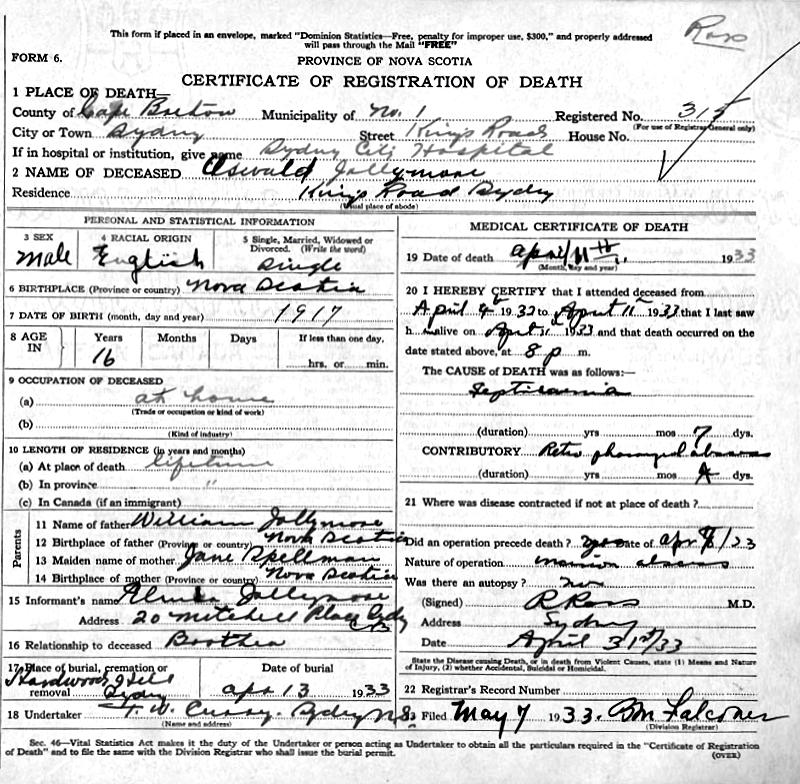 Ross
This form if placed in an envelope, marked "Dominion Statistics—Free, penalty for improper use, $300," and properly addressed
will pass through the Mail "FREE"
FORM 6.
PROVINCE OF NOVA SCOTIA
CERTIFICATE OF REGISTRATION OF DEATH
1 PLACE OF DEATH—
County of Cape Breton Municipality of No. 1 Registered No. 315
(For use of Registrar General only)
City or Town Sydney Street Kings Road House No.
If in hospital or institution, give name Sydney City Hospital
2 NAME OF DECEASED Oswald Jollymore
Residence Kings Road Sydney
(Usual place of abode)
PERSONAL AND STATISTICAL INFORMATION
3 SEX 4 RACIAL ORIGIN 5 Single, Married, Widowed or Divorced. (Write the word)
Male English Single
6 BIRTHPLACE (Province or country) Nova Scotia
7 DATE OF BIRTH (month, day and year) 1917
8 AGE IN Years Months Days If less than one day.
16 hrs. or min.
9 OCCUPATION OF DECEASED
(a) at home
(Trade or occupation or kind of work)
(b)
(Kind of industry)
10 LENGTH OF RESIDENCE (in years and months)
(a) At place of death lifetime
(b) In province "
(c) In Canada (if an immigrant)
Parents
11 Name of father William Jollymore
12 Birthplace of father (Province or country) Nova Scotia
13 Maiden name of mother Jane Spellman
14 Birthplace of mother (Province or country) Nova Scotia
15 Informant's name Jollymore
Address 20 Mitchell Place Sydney
16 Relationship to deceased Brother
17 Place of burial, cremation or removal Date of burial
Hardwood Hill Sydney Apr 13 1933
18 Undertaker F. W. Curry. Sydney N.S.
(Name and address)
MEDICAL CERTIFICATE OF DEATH
19 Date of death April 11th. 1933
(Month, day and year)
20 I HEREBY CERTIFY that I attended deceased from
April 4th 1933 to April 11th 1933 that I last saw
h alive on April 11th 1933 and that death occurred on the
date stated above, at 8 p m.
The CAUSE of DEATH was as follows:—
Septicaemia
(duration) yrs mos 7 dys.
CONTRIBUTORY Retro pharyngeal abscess
(duration) yrs mos dys.
21 Where was disease contracted if not at place of death?
Did an operation precede death? yes Date of apr 8/33
Nature of operation abscess
Was there an autopsy?
(Signed) R Ross M.D.
Address Sydney
Date April 31st/33
State the Disease causing Death, or in death from Violent Causes, state (1) Means and Nature
of Injury, (2) whether Accidental, Suicidal or Homicidal.
22 Registrar's Record Number
23 Filed May 7 1933. BM Falconer
(Division Registrar)
Sec. 46—Vital Statistics Act makes it the duty of the Undertaker or person acting as Undertaker to obtain all the particulars required in the "Certificate of Registration
of Death" and to file the same with the Division Registrar who shall issue the burial permit.
(OVER)